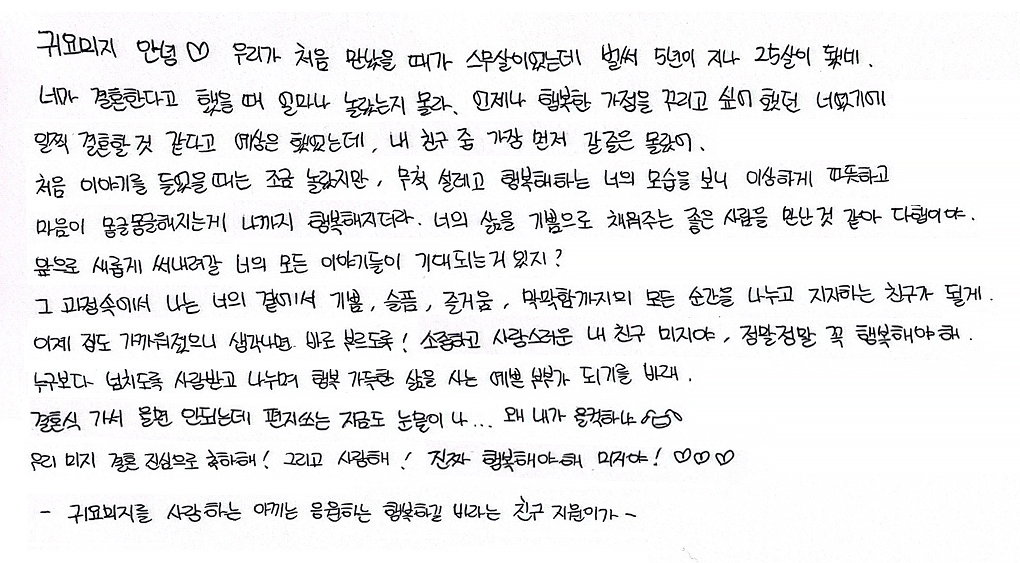 귀요미지 안녕 ♡ 우리가 처음 만났을 때가 스무살이었는데 벌써 5년이 지나 25살이 됐네.
너가 결혼한다고 했을 때 얼마나 놀랐는지 몰라. 언제나 행복한 가정을 꾸리고 싶어 했던 너였기에
일찍 결혼할 것 같다고 예상은 했었는데, 내 친구 중 가장 먼저 갈 줄은 몰랐어.
처음 이야기를 들었을 때는 조금 놀랐지만, 무척 설레고 행복해하는 너의 모습을 보니 이상하게 따뜻하고
마음이 몽글몽글해지는게 나까지 행복해지더라. 너의 삶을 기쁨으로 채워주는 좋은 사람을 만난 것 같아 다행이야.
앞으로 새롭게 써내려갈 너의 모든 이야기들이 기대되는거 있지?
그 과정속에서 나는 너의 곁에서 기쁨, 슬픔, 즐거움, 막막함까지의 모든 순간을 나누고 지지하는 친구가 될게.
이제 집도 가까워졌으니 생각나면 바로 부르도록! 소중하고 사랑스러운 내 친구 미지야, 정말정말 꼭 행복해야 해.
누구보다 넘치도록 사랑받고 나누며 행복 가득한 삶을 사는 예쁜 부부가 되기를 바래.
결혼식 가서 울면 안되는데 편지쓰는 지금도 눈물이 나... 왜 내가 울컥하냐
우리 미지 결혼 진심으로 축하해! 그리고 사랑해! 진짜 행복해야해 미지야! ♡♡♡
- 귀요미지를 사랑하는 아끼는 응원하는 행복하길 바라는 친구 지원이가 -